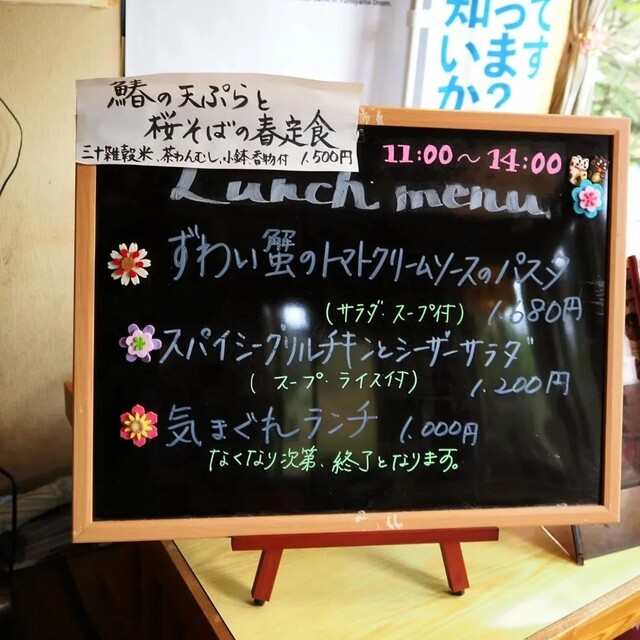 鰆の天ぷらと
桜そばの春定食
三十雑穀米、茶わんむし、小鉢、香物付 1,500円
11:00～14:00
Lunch menu
ずわい蟹のトマトクリームソースのパスタ
(サラダ・スープ付) 1,680円
スパイシーグリルチキンとシーザーサラダ
(スープ・ライス付) 1,200円
気まぐれランチ 1,000円
なくなり次第、終了となります。
です
っま?
知いか